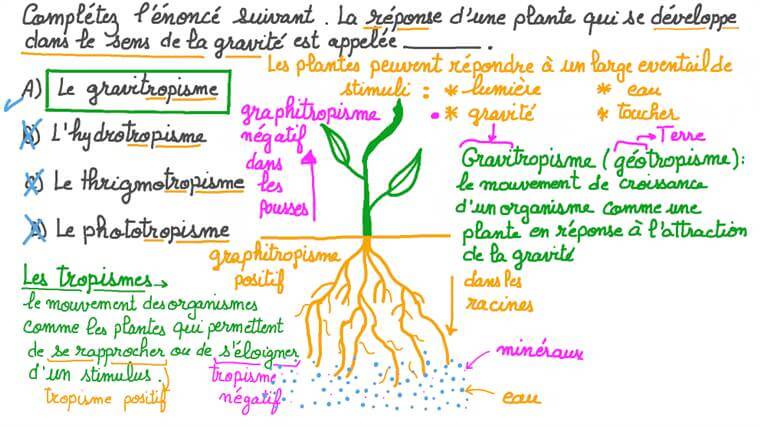 Complétez l'énoncé suivant. La réponse d'une plante qui se développe
dans le sens de la gravité est appelée ______.
A) Le gravitropisme
B) L'hydrotropisme
C) Le thrigmotropisme
D) Le phototropisme
Les plantes peuvent répondre à un large eventail de
stimuli : * lumière * eau
* gravité * toucher
graphitropisme
négatif
dans
les
pousses
Terre
Gravitropisme (géotropisme):
le mouvement de croissance
d'un organisme comme une
plante en réponse à l'attraction
de la gravité
graphitropisme
positif
dans les
racines
Les tropismes
le mouvement des organismes
comme les plantes qui permettent
de se rapprocher ou de s'éloigner
d'un stimulus.
tropisme positif
tropisme
négatif
minéraux
eau